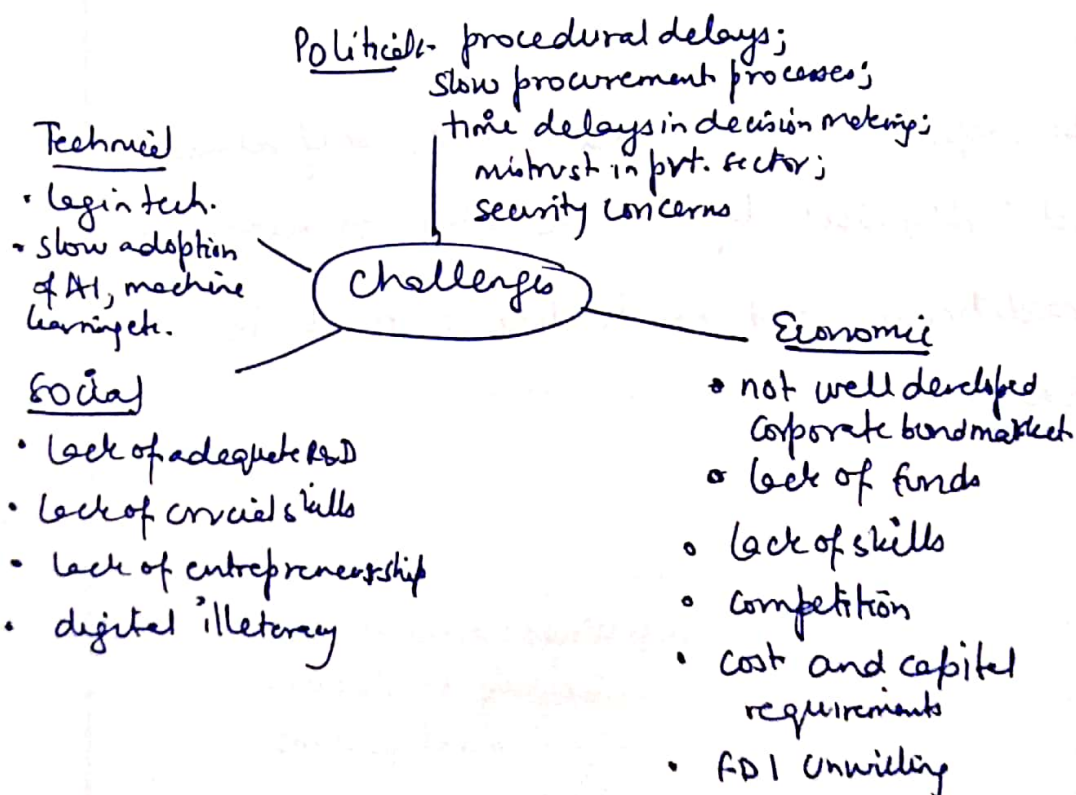 Political:- procedural delays;
slow procurement processes;
time delays in decision making;
mistrust in pvt. sector;
security concerns
Technical
• lag in tech.
• slow adoption
of AI, machine
learning etc.
Challenges
Social
• lack of adequate R&D
• lack of crucial skills
• lack of entrepreneurship
• digital illeteracy
Economic
• not well developed
corporate bond market
• lack of funds
• lack of skills
• competition
• cost and capital
requirements
• FDI unwilling